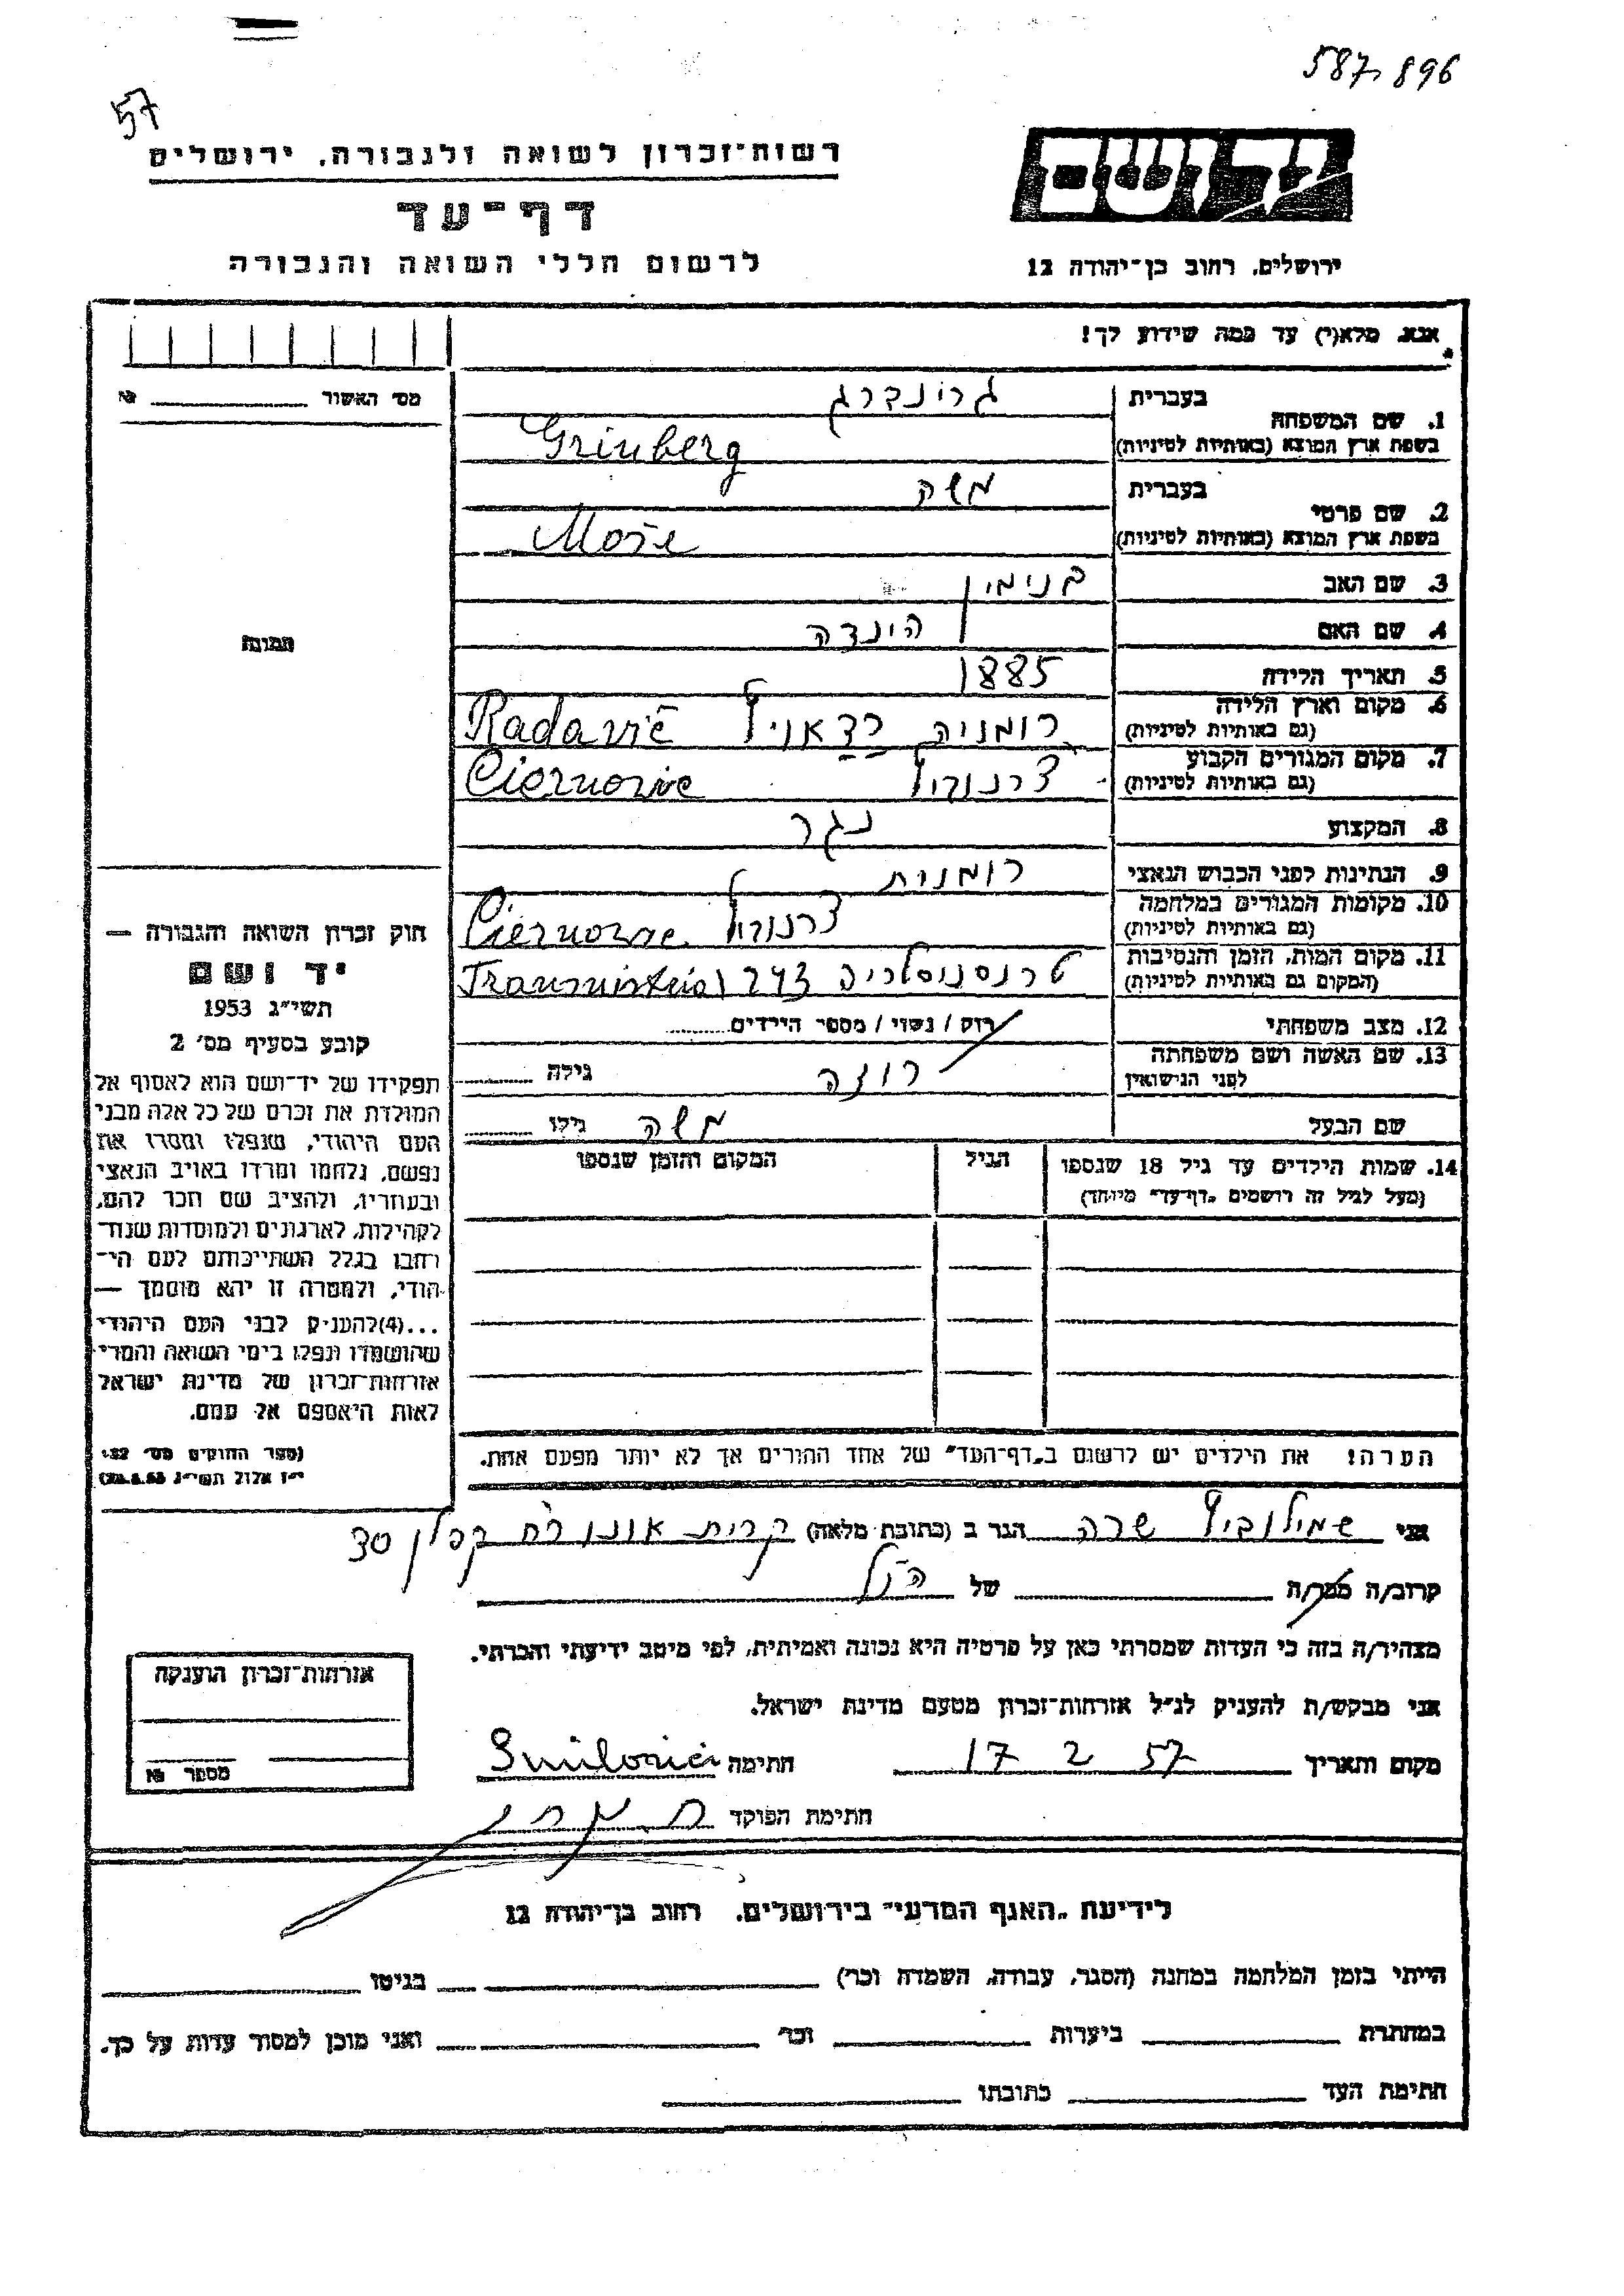 587,896
57
יד ושם
רשות־זכרון לשואה ולגבורה, ירושלים
דף־עד
לרשום חללי השואה והגבורה
ירושלים, רחוב בן־יהודה 12
אנא, מלא(י) עד כמה שידוע לך!
מס' האשור № 
1. שם המשפחה בעברית גרונברג
בשפת ארץ המוצא (באותיות לטיניות) Grinberg
2. שם פרטי בעברית משה
בשפת ארץ המוצא (באותיות לטיניות) Moše
3. שם האב בנימין
4. שם האם הינדה
תמונה
5. תאריך הלידה 1885
6. מקום וארץ הלידה (גם באותיות לטיניות) רומניה
7. מקום המגורים הקבוע (גם באותיות לטיניות)
8. המקצוע נגר
9. הנתינות לפני הכבוש הנאצי רומנית
10. מקומות המגורים במלחמה (גם באותיות לטיניות)
11. מקום המות, הזמן והנסיבות (המקום גם באותיות לטיניות)
12. מצב משפחתי רווק / נשוי / מספר הילדים
13. שם האשה ושם משפחתה לפני הנישואין רוזה גילה
שם הבעל משה גילו
14. שמות הילדים עד גיל 18 שנספו הגיל המקום והזמן שנספו
(מעל לגיל זה רושמים „דף־עד” מיוחד)
הערה! את הילדים יש לרשום ב„דף־העד” של אחד ההורים אך לא יותר מפעם אחת.
חוק זכרון השואה והגבורה —
יד ושם
תשי״ג 1953
קובע בסעיף מס׳ 2
תפקידו של יד־ושם הוא לאסוף אל
המולדת את זכרם של כל אלה מבני
העם היהודי, שנפלו ומסרו את
נפשם, נלחמו ומרדו באויב הנאצי
ובעוזריו, ולהציב שם וזכר להם,
לקהילות, לארגונים ולמוסדות שנח־
רבו בגלל השתייכותם לעם הי־
הודי, ולמטרה זו יהא מוסמך —
...(4)להעניק לבני העם היהודי
שהושמדו ונפלו בימי השואה והמרי
אזרחות־זכרון של מדינת ישראל
לאות היאספם אל עמם.
(ספר החוקים מס׳ 132
י״ז אלול תשי״ג 28.8.53)
אני שמילוביץ שרה הגר ב (כתובת מלאה) קרית אונו רח קפלן 30
קרוב/ה מכר/ה של הנ״ל
מצהיר/ה בזה כי העדות שמסרתי כאן על פרטיה היא נכונה ואמיתית, לפי מיטב ידיעתי והכרתי.
אני מבקש/ת להעניק לנ״ל אזרחות־זכרון מטעם מדינת ישראל.
מקום ותאריך 17 2 57 חתימה Smilovici
חתימת הפוקד
אזרחות־זכרון הוענקה
מספר №
לידיעת „האגף המדעי” בירושלים, רחוב בן־יהודה 12
הייתי בזמן המלחמה במחנה (הסגר, עבודה, השמדה וכו׳) בגיטו
במחתרת ביערות וכו׳ ואני מוכן למסור עדות על כך.
חתימת העד כתובתו